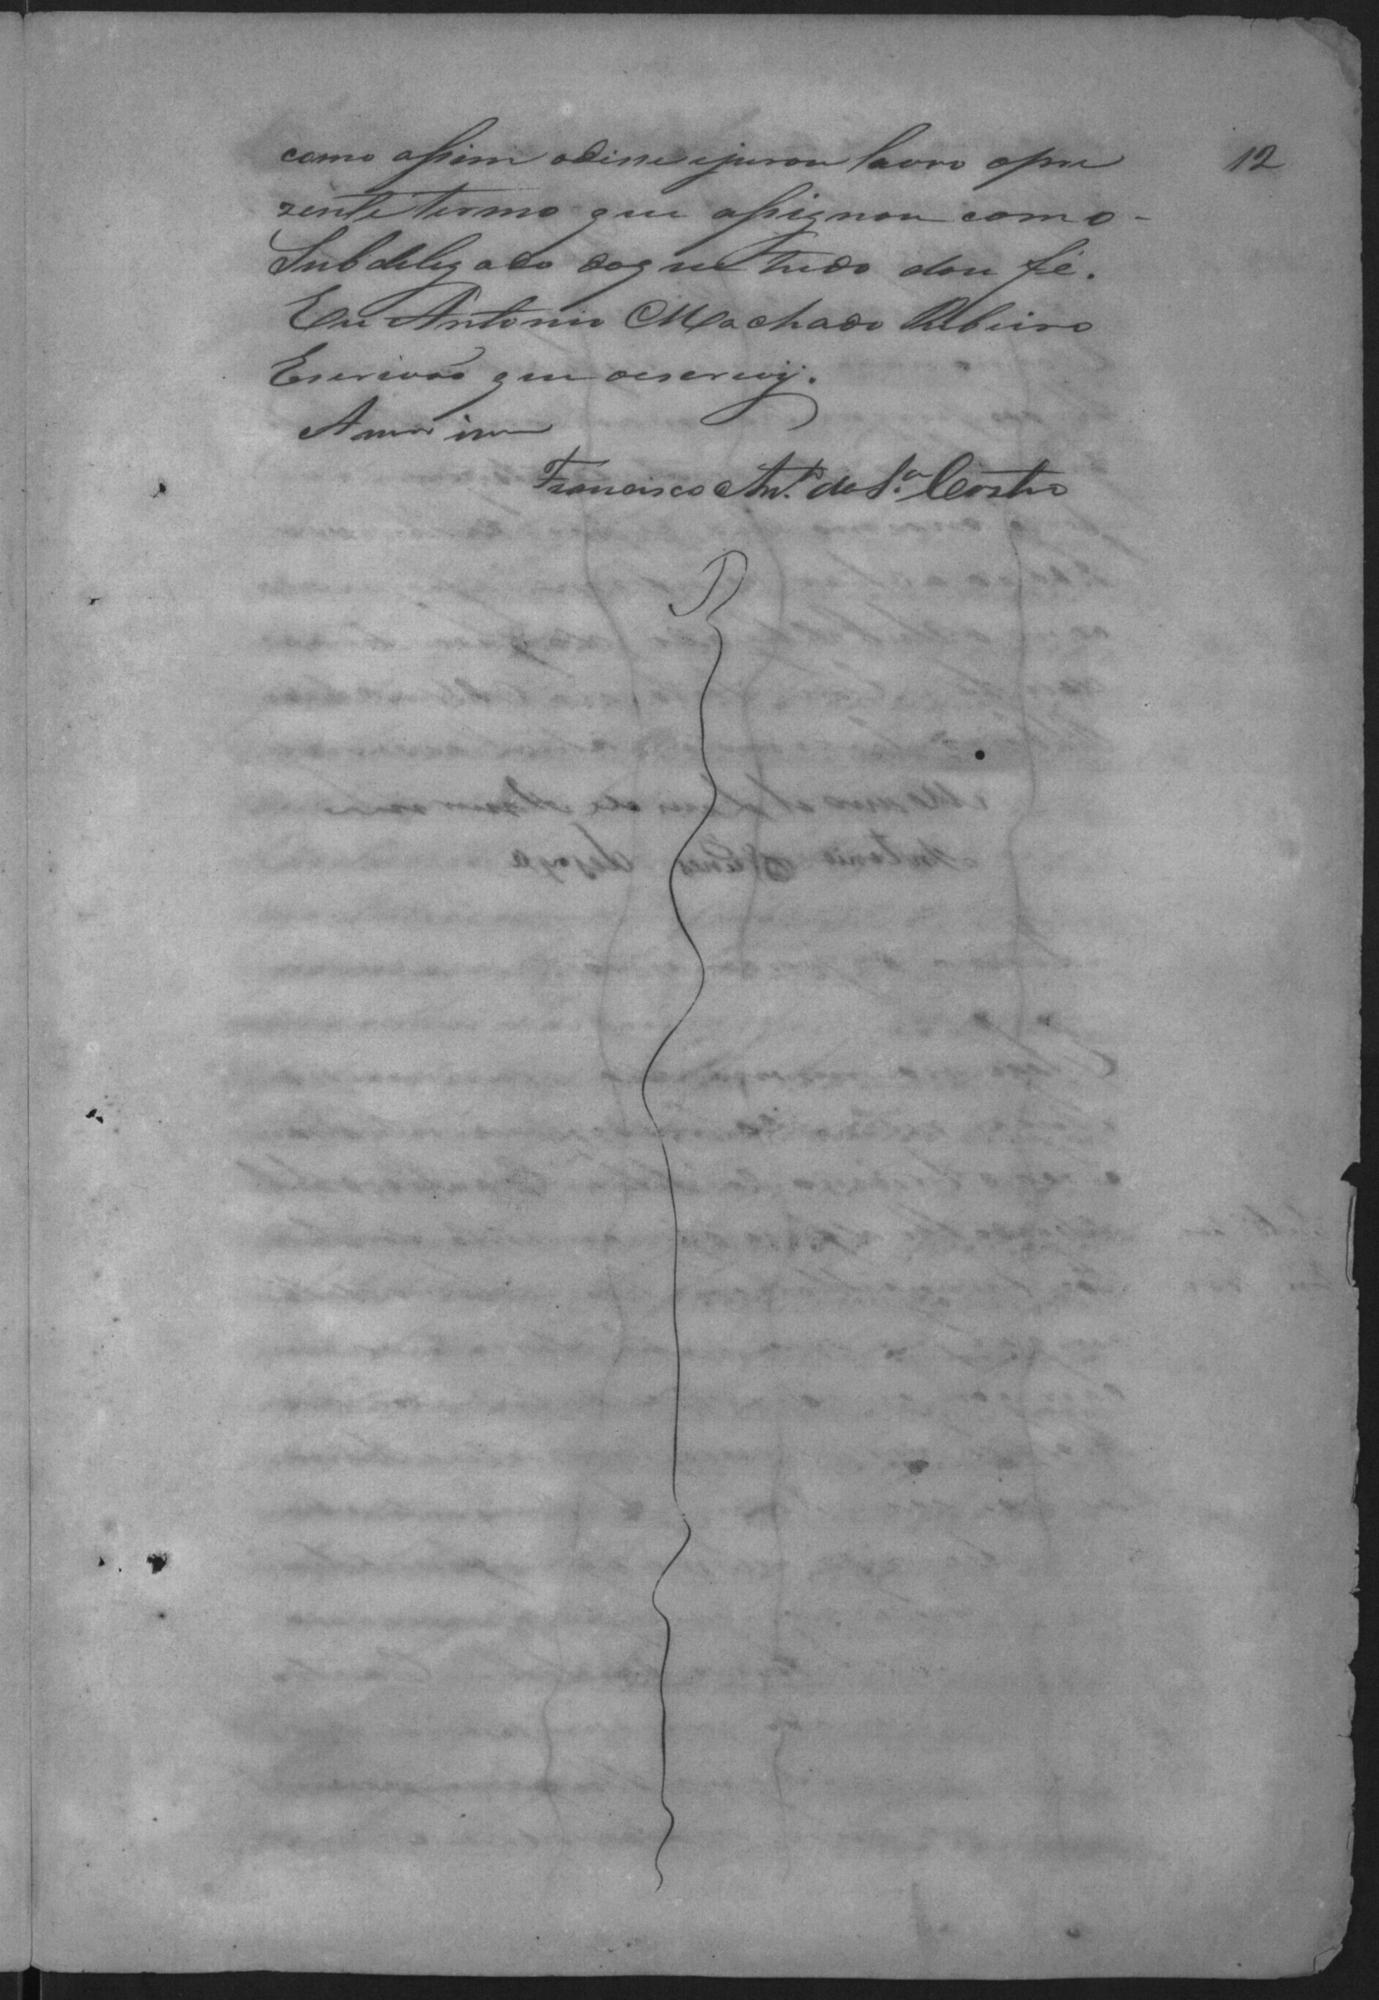 12
como assim odisse ejurou lavro opre
zente termo que assignou com o-
Subdelegado doque tudo dou fé.
Eu Antonio Machado Ribeiro
Escrivão que oescrevy.
Amorim
Francisco Ant.º da S.ª Costa